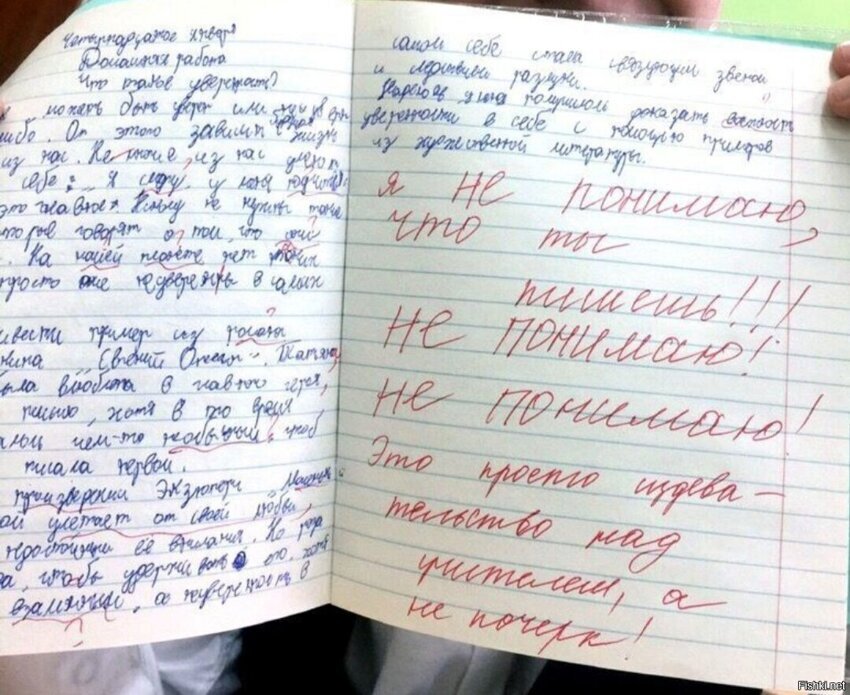 Четырнадцатое января
Домашняя работа
Что такое уверенность?
может быть уверен или
либо. От этого зависит жизнь
из нас. Не многие из нас умеют
себе: " Я сяду, у меня
это главное" Никому не нужны
говорят о том, что они
. На нашей планете нет таких
просто они не уверены в
привести пример из романа
"Евгений Онегин". Татьяна,
была влюблена в главного героя,
письмо, хотя в то время
чем-то необычным, чтоб
писала первой.
произведении Экзюпери "Маленький
улетает от своей любви,
её внимания. Но роза
, чтобы удержать его, хотя
взаимный, а неуверенность в
самой себе стала связующим звеном
и разлуки.
Надеюсь я вам помог доказать важность
уверенности в себе с помощью примеров
из художественной литературы.
Я не понимаю,
что ты
пишешь!!!
Не понимаю!
Не понимаю!
Это просто издева-
тельство над
учителем, а
не почерк!
Fishki.net